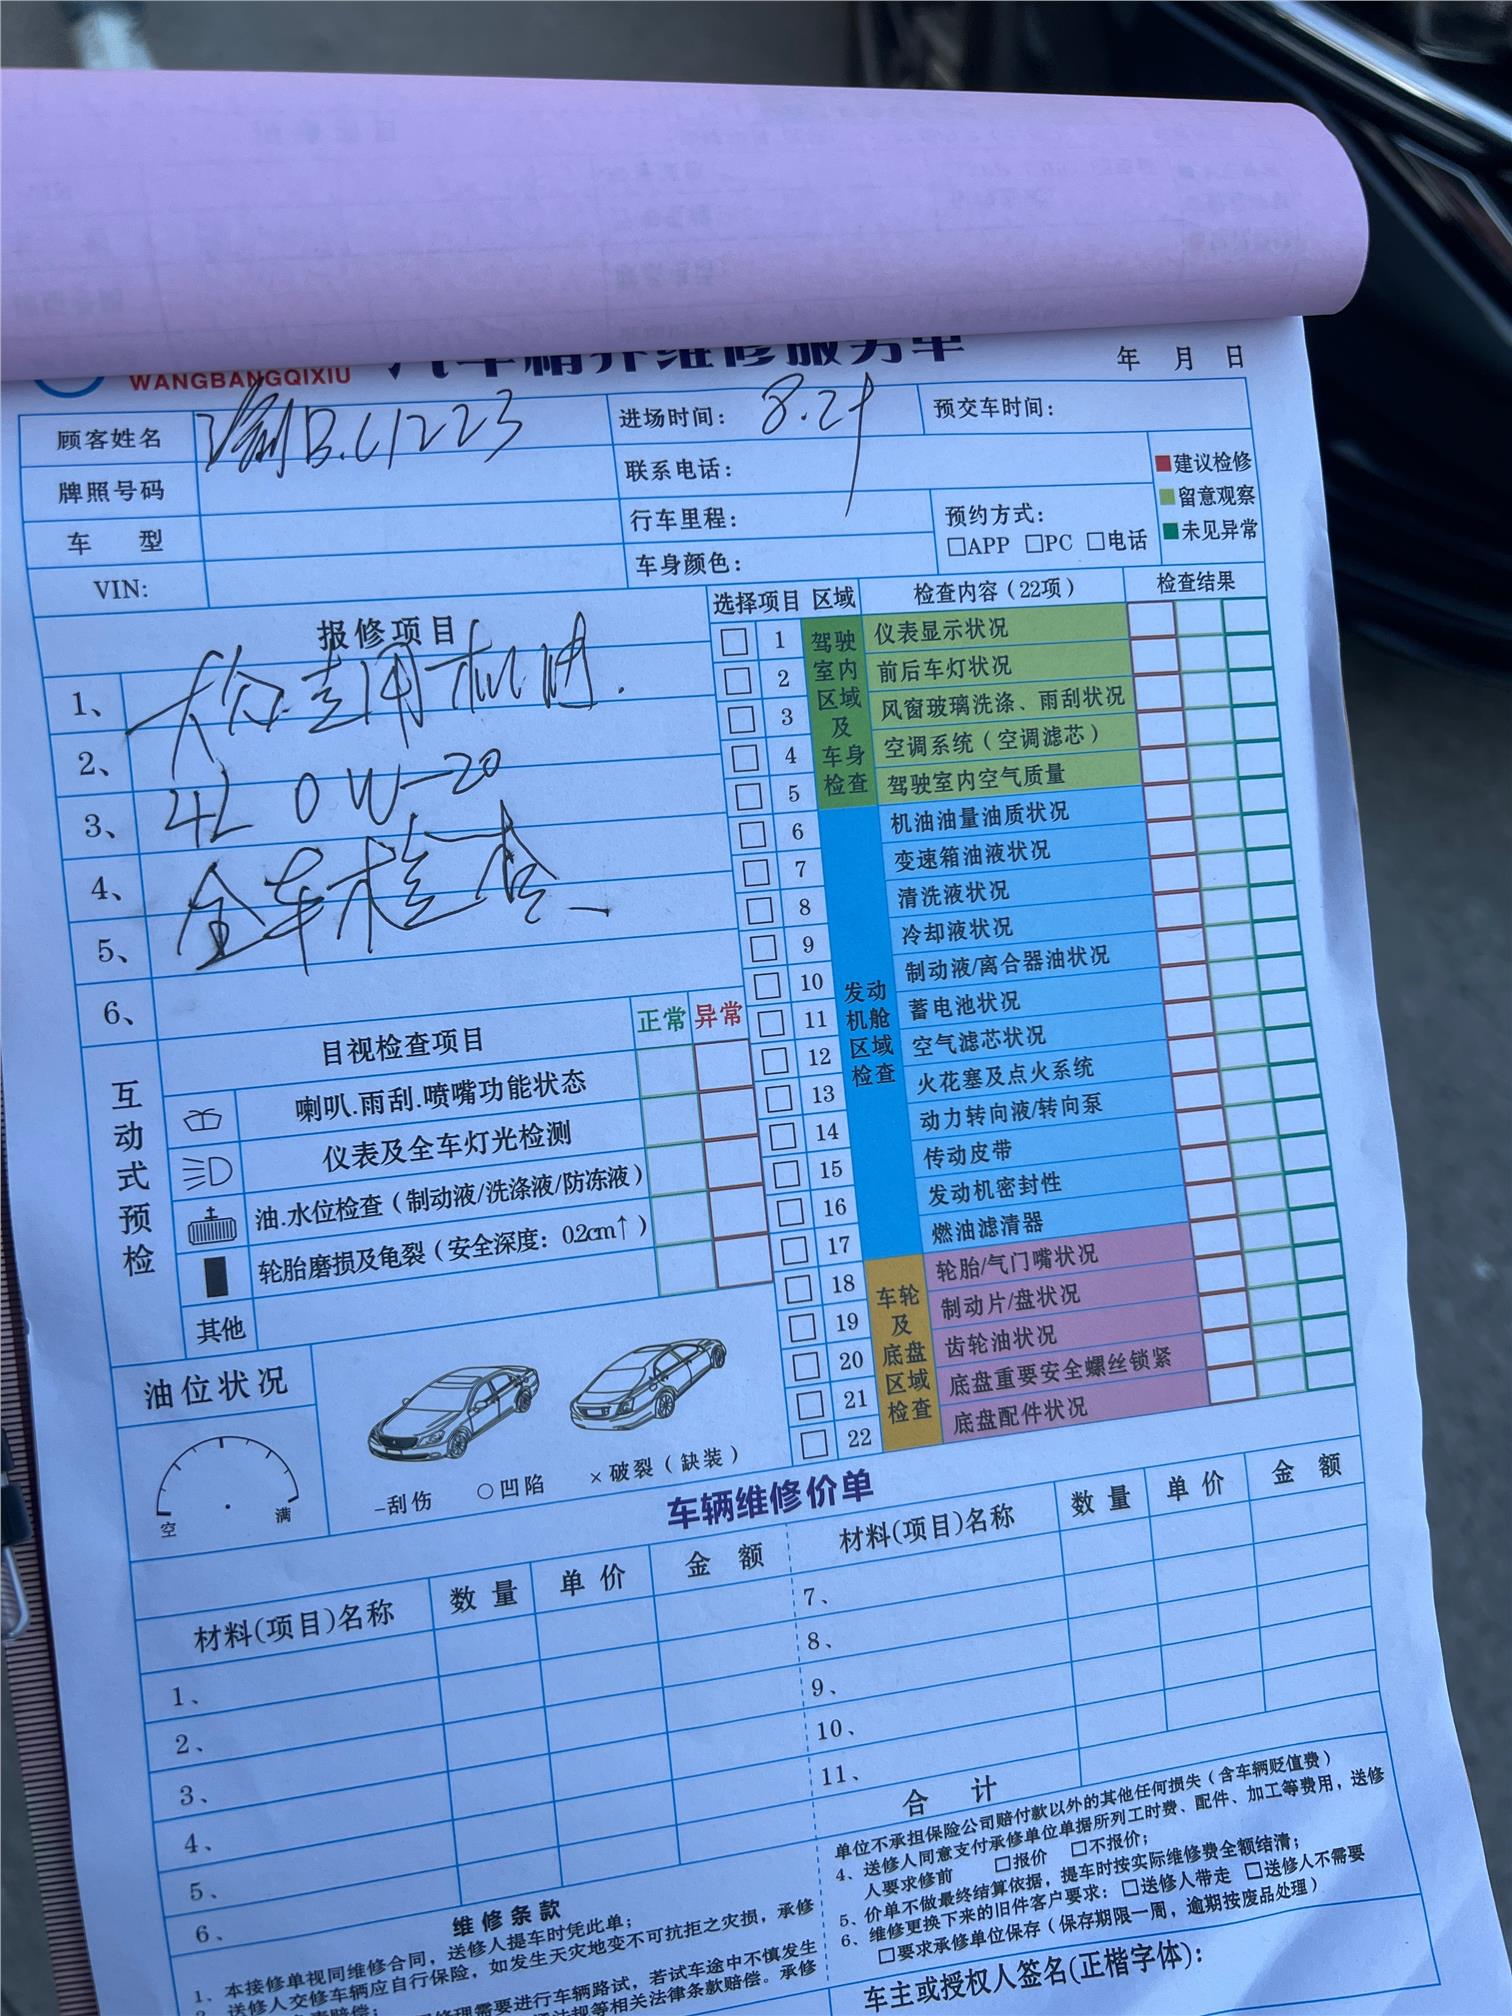 WANGBANGQIXIU 汽车精养维修服务单
年 月 日
顾客姓名 渝B.C1223 进场时间: 8.29 预交车时间:
牌照号码 联系电话:
■建议检修
■留意观察
■未见异常
车 型 行车里程: 预约方式:
□APP □PC □电话
VIN: 车身颜色:
报修项目
1、 机油.
2、
3、 4L 0W-20
4、
5、 全车检查
6、
选择项目 区域 检查内容(22项) 检查结果
驾驶室内区域及车身检查
1 仪表显示状况
2 前后车灯状况
3 风窗玻璃洗涤、雨刮状况
4 空调系统(空调滤芯)
5 驾驶室内空气质量
发动机舱区域检查
6 机油油量油质状况
7 变速箱油液状况
8 清洗液状况
9 冷却液状况
10 制动液/离合器油状况
11 蓄电池状况
12 空气滤芯状况
13 火花塞及点火系统
14 动力转向液/转向泵
15 传动皮带
16 发动机密封性
17 燃油滤清器
车轮及底盘区域检查
18 轮胎/气门嘴状况
19 制动片/盘状况
20 齿轮油状况
21 底盘重要安全螺丝锁紧
22 底盘配件状况
互动式预检
目视检查项目 正常 异常
喇叭.雨刮.喷嘴功能状态
仪表及全车灯光检测
油.水位检查(制动液/洗涤液/防冻液)
轮胎磨损及龟裂(安全深度: 0.2cm↑)
其他
油位状况
空 满
-刮伤 ○凹陷 ×破裂(缺装)
车辆维修价单
材料(项目)名称 数量 单价 金额 材料(项目)名称 数量 单价 金额
1、 7、
2、 8、
3、 9、
4、 10、
5、 11、
6、 合 计
维修条款
1、本接修单视同维修合同,送修人提车时凭此单;
送修人交修车辆应自行保险,如发生天灾地变不可抗拒之灾损,承修
理需要进行车辆路试,若试车途中不慎发生
法规等相关法律条款赔偿。承修
单位不承担保险公司赔付款以外的其他任何损失(含车辆贬值费)
4、送修人同意支付承修单位单据所列工时费、配件、加工等费用,送修
人要求修前 □报价 □不报价;
5、价单不做最终结算依据,提车时按实际维修费全额结清;
6、维修更换下来的旧件客户要求: □送修人带走 □送修人不需要
□要求承修单位保存(保存期限一周,逾期按废品处理)
车主或授权人签名(正楷字体):